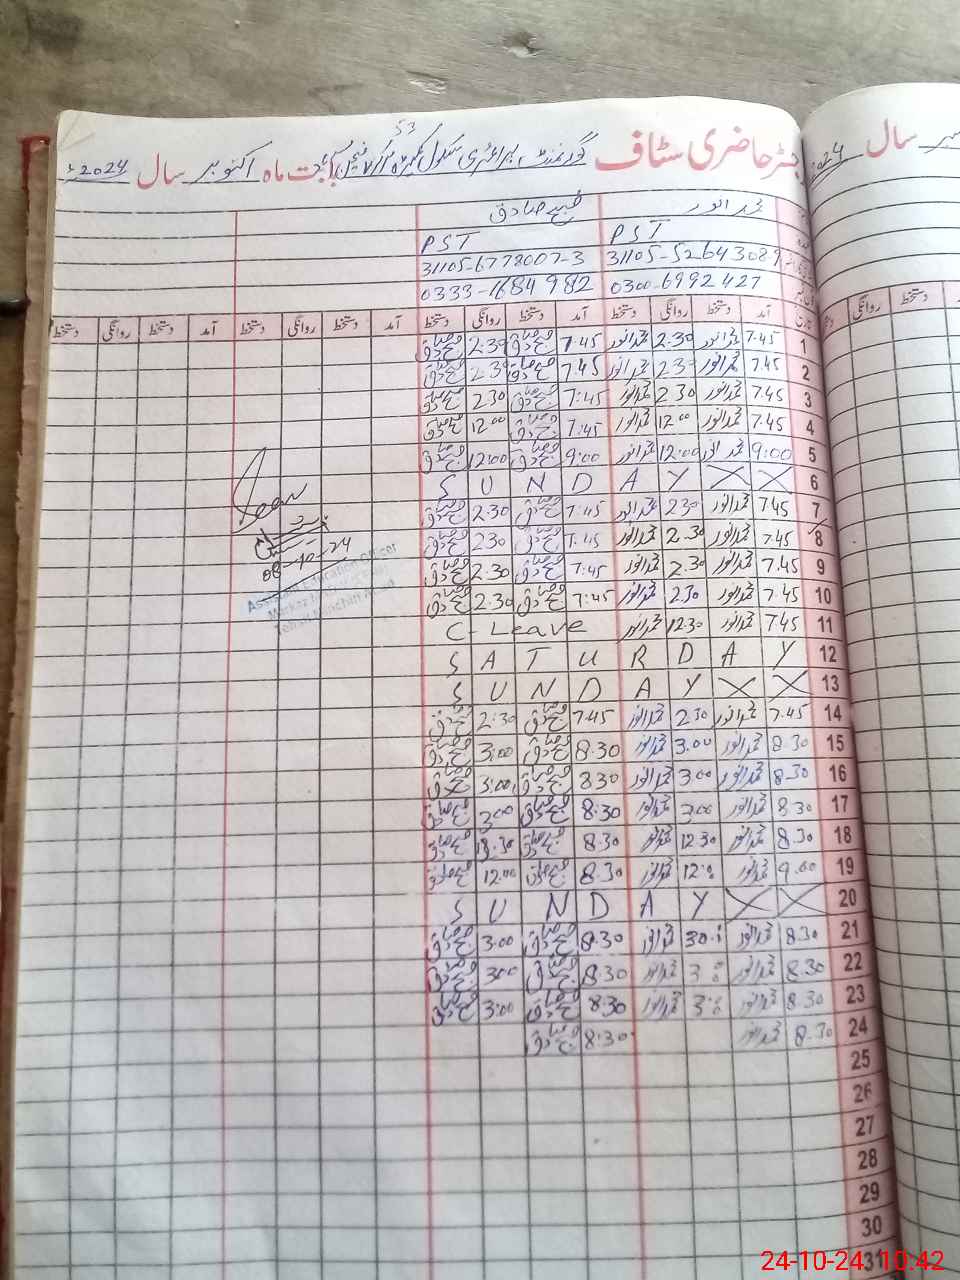 رجسٹر حاضری سٹاف گورنمنٹ پرائمری سکول بابت ماہ اکتوبر سال 2024ء
محمد انور فصیح صادق
PST PST
31105-5264308-9 31105-6778007-3
0300-6992427 0333-1684982
آمد دستخط روانگی دستخط آمد دستخط روانگی دستخط آمد دستخط روانگی دستخط آمد دستخط روانگی دستخط
1 7.45 محمد انور 2.30 محمد انور 7.45 فصیح صادق 2.30 فصیح صادق
2 7.45 محمد انور 2.30 محمد انور 7.45 فصیح صادق 2.30 فصیح صادق
3 7.45 محمد انور 2.30 محمد انور 7:45 فصیح صادق 2.30 فصیح صادق
4 7.45 محمد انور 12.00 محمد انور 7:45 فصیح صادق 12.00 فصیح صادق
5 9:00 محمد انور 12:00 محمد انور 9:00 فصیح صادق 12:00 فصیح صادق
6 S U N D A Y X X
7 7.45 محمد انور 2.30 محمد انور 7:45 فصیح صادق 2.30 فصیح صادق
8 7.45 محمد انور 2.30 محمد انور 7:45 فصیح صادق 2.30 فصیح صادق
9 7.45 محمد انور 2.30 محمد انور 7:45 فصیح صادق 2.30 فصیح صادق
10 7.45 محمد انور 2.30 محمد انور 7:45 فصیح صادق 2.30 فصیح صادق
11 7.45 محمد انور 12.30 محمد انور C-Leave
12 S A T U R D A Y
13 S U N D A Y X X
14 7.45 محمد انور 2.30 محمد انور 7.45 فصیح صادق 2:30 فصیح صادق
15 8.30 محمد انور 3.00 محمد انور 8.30 فصیح صادق 3:00 فصیح صادق
16 8.30 محمد انور 3.00 محمد انور 8.30 فصیح صادق 3:00 فصیح صادق
17 8.30 محمد انور 3.00 محمد انور 8.30 فصیح صادق 3.00 فصیح صادق
18 8.30 محمد انور 12.30 محمد انور 8.30 فصیح صادق 12.30 فصیح صادق
19 9.00 محمد انور 12:0 محمد انور 8.30 فصیح صادق 12:00 فصیح صادق
20 S U N D A Y X X
21 8.30 محمد انور محمد انور 8.30 فصیح صادق 3.00 فصیح صادق
22 8.30 محمد انور محمد انور 8.30 فصیح صادق 3:00 فصیح صادق
23 8.30 محمد انور محمد انور 8.30 فصیح صادق 3:00 فصیح صادق
24 8.30 محمد انور 8:30 فصیح صادق
25
26
27
28
29
30
31
08-10-24
Assistant Education Officer
Markaz
سال 2024
آمد دستخط روانگی
24-10-24 10:42